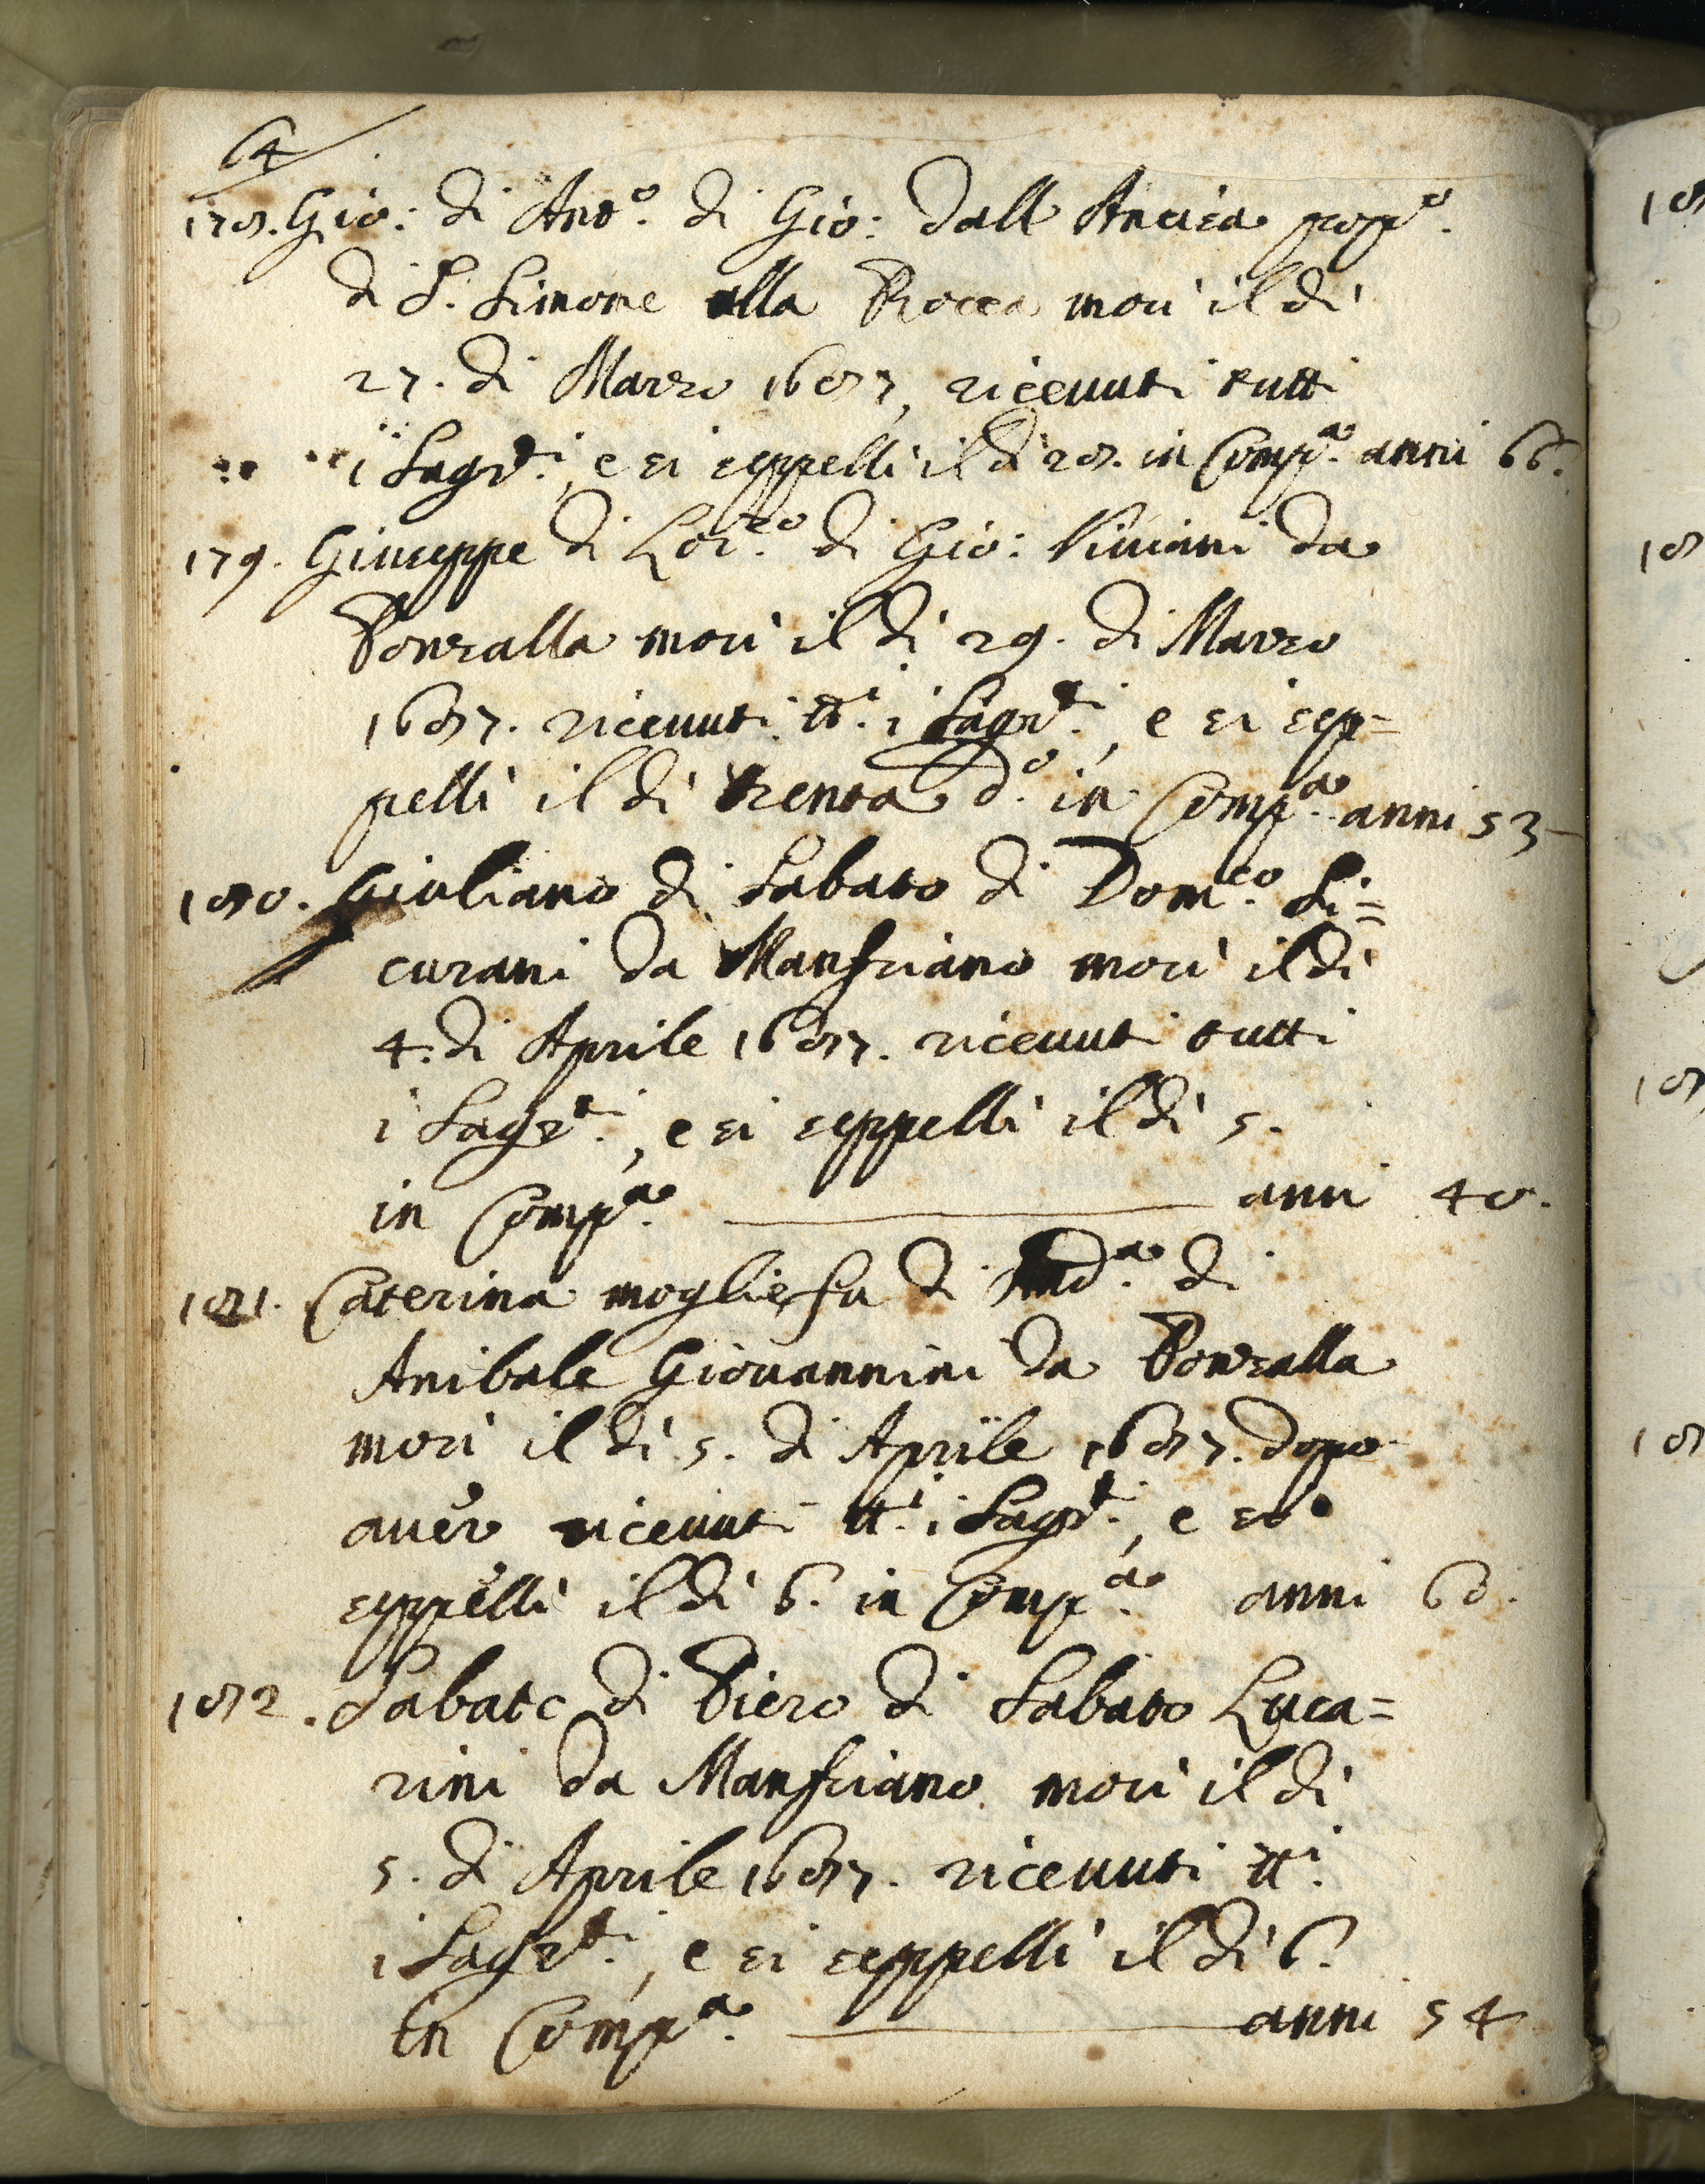 64
178. Gio: di Ant.º di Gio: dall Ancisa pop.º
di S. Simone alla Rocca morì il di
27. di Marzo 1687, riceuuti tutti
i Sagr.ti, e si seppellì il dì 28. in Comp.a anni 66.
179. Giuseppe di Lor.zo di Gio: Viuiani da
Ponzalla morì il dì 29. di Marzo
1687. riceuuti tt.i i Sagr.ti, e si sep=
pellì il dì trenta d.º in Comp.a anni 53
180. Giuliano di Sabato di Dom.co Si=
curani da Manfriano morì il dì
4. di Aprile 1687. riceuuti tutti
i Sagr.ti, e si seppellì il dì 5.
in Comp.a anni 40.
181. Caterina moglie fu di And.a di
Anibale Giouannini da Ponzalla
morì il dì 5. di Aprile 1687. dopo
auer riceuuti tt.i i Sagr.ti, e si
seppellì il dì 6. in Comp.a anni 60.
182. Sabato di Piero di Sabato Luca=
rini da Manfriano morì il dì
5. di Aprile 1687. riceuuti tt.i
i Sagr.ti, e si seppellì il dì 6.
in Comp.a anni 54